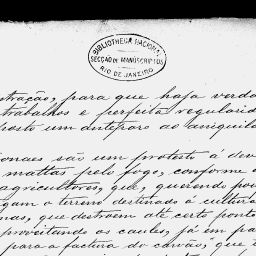 BIBLIOTHECA NACIONAL
SECÇÃO DE MANUSCRIPTOS
RIO DE JANEIRO
stração, para que haja verda
trabalhos e perfeita regularid
posto um anteparo ao aniquila
ionaes são um protesto á dev
mattas pelo fogo, conforme o
agricultores, que, querendo pou
gam o terreno destinado á cultura
nas, que destroem até certo ponto
proveitando os caules, já em pa
para a factura do carvão, que é